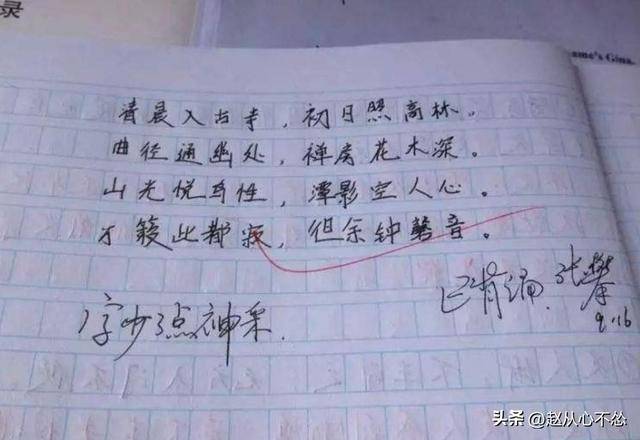 录
ame's Gina.
清晨入古寺，初日照高林。
曲径通幽处，禅房花木深。
山光悦鸟性，潭影空人心。
万籁此都寂，但余钟磬音。
字少了点神采.
已背诵. 张攀
9.16
头条 @赵从心不怂